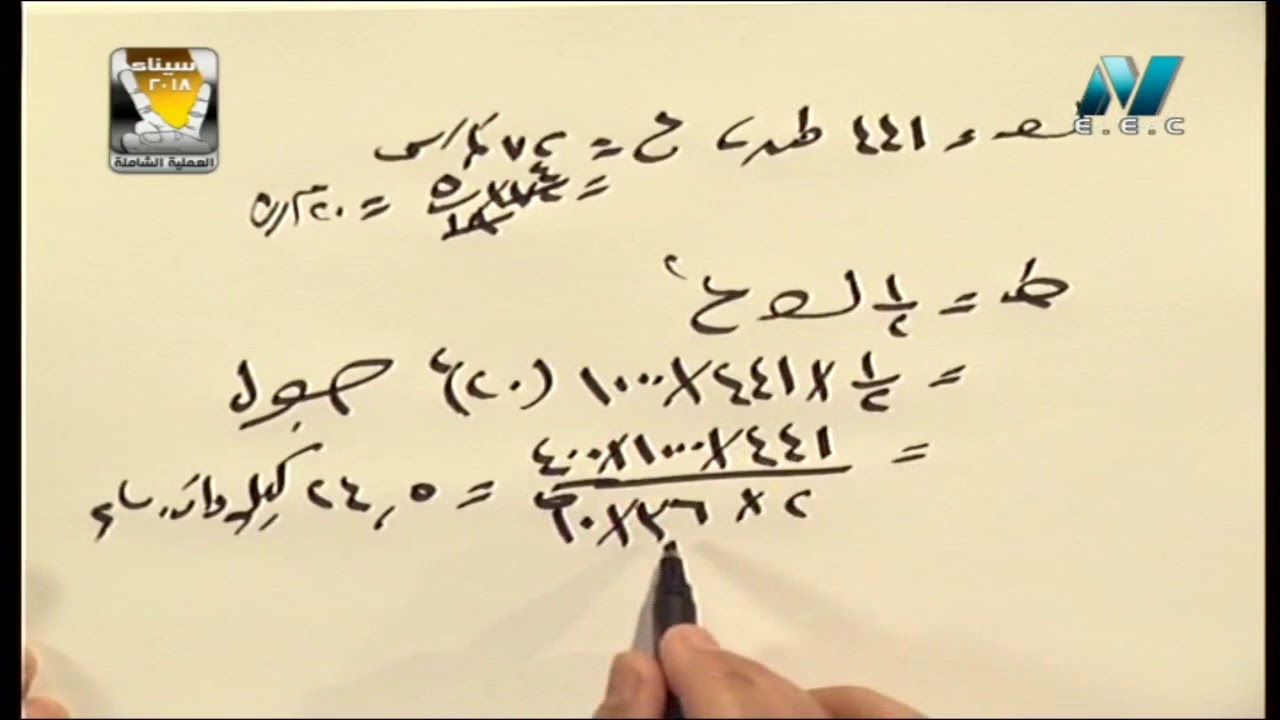 سيناء
٢٠١٨
العملية الشاملة
E.E.C
ك = ٤٤١ طن ، ع = ٧٢ كم/س
= ٧٢ × ٥/١٨ = ٢٠ م/ث
ط = ١/٢ ك ع٢
= ١/٢ × ٤٤١ × ١٠٠٠ (٢٠)٢ جول
= ٤٤١ × ١٠٠٠ × ٤٠٠ / ٢ × ٣٦ × ١٠٥ = ٢٤,٥ كيلو وات. ساعة